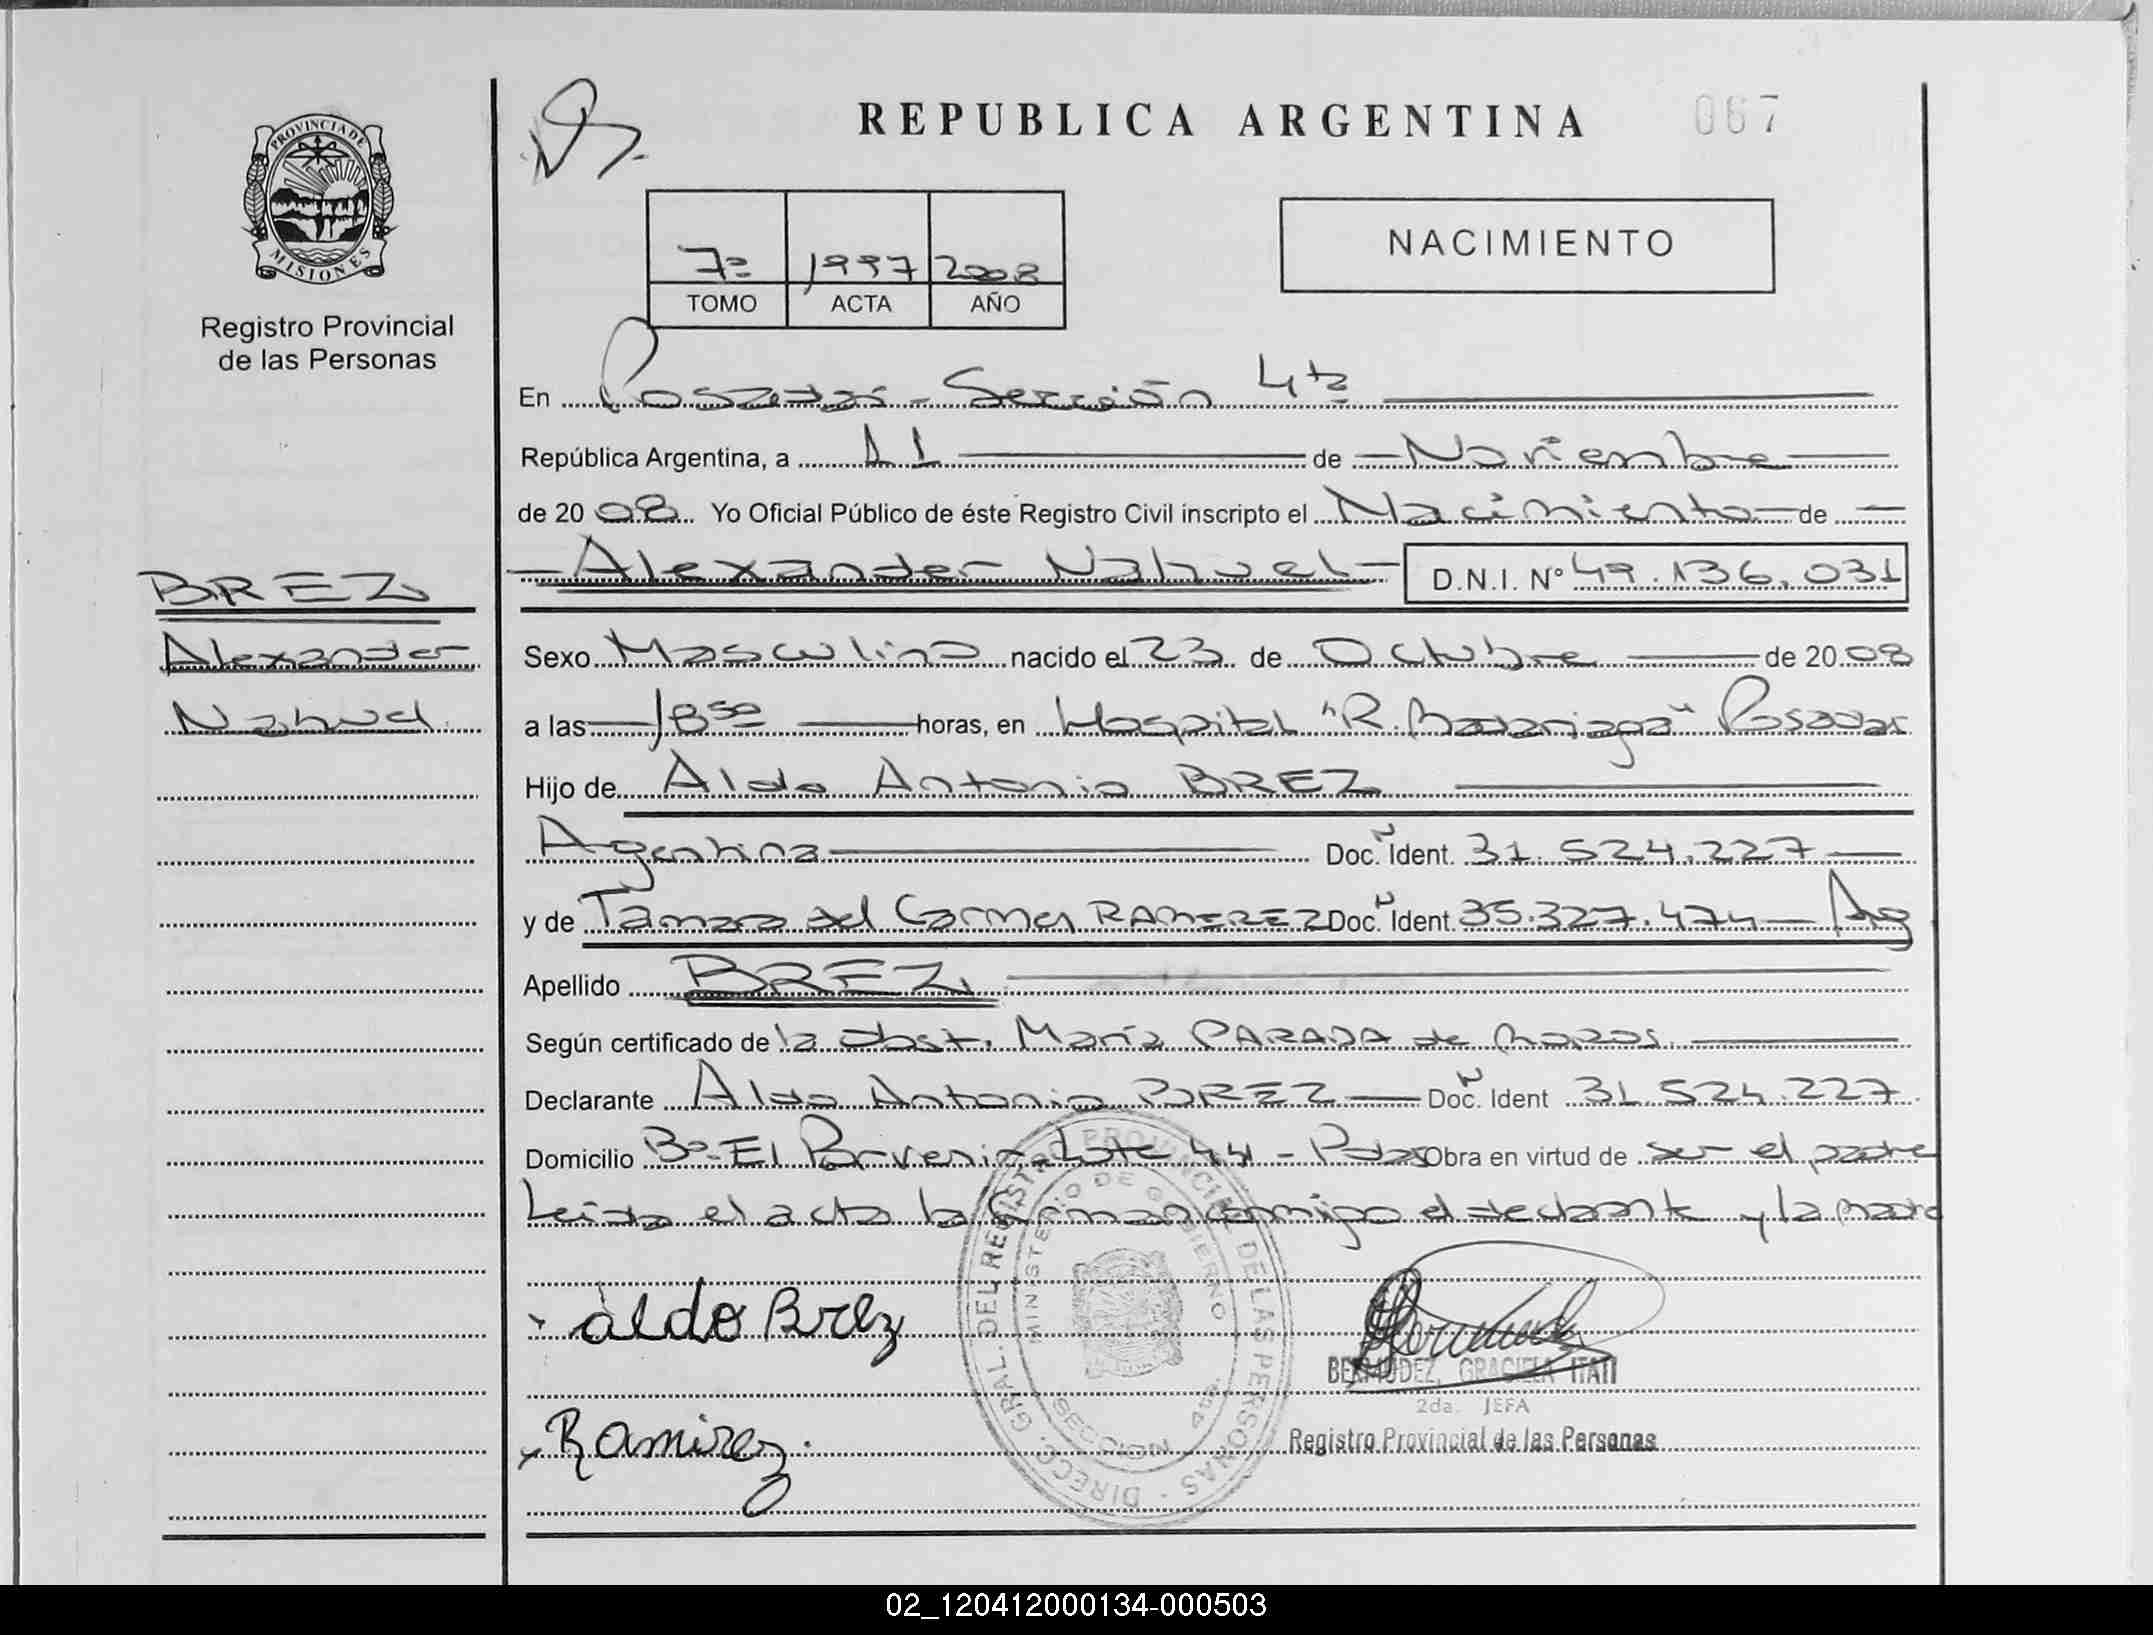 REPUBLICA ARGENTINA
067
PROVINCIA DE
MISIONES
Registro Provincial
de las Personas
7º 1997 2008
TOMO ACTA AÑO
NACIMIENTO
En Posadas - Sección 4ta
República Argentina, a 11 de Noviembre
de 2008 Yo Oficial Público de éste Registro Civil inscripto el Nacimiento de
Alexander Nahuel D.N.I. Nº 49.136.031
BREZ
Alexander
Nahuel
Sexo Masculino nacido el 23 de Octubre de 2008
a las 18 50 horas, en Hospital "R. Madariaga" Posadas
Hijo de Aldo Antonio BREZ
Agentina Doc. Ident. 31.524.227
y de Tamara del Carmen RAMIREZ Doc. Ident. 35.327.474 - Ag
Apellido BREZ
Según certificado de la obst. María PARADA de
Declarante Aldo Antonio BREZ Doc. Ident 31.524.227
Domicilio Bº El Porvenir Lote 44 - Pdas Obra en virtud de ser el padre
Leida el acta la firman conmigo el declarante y la madre
Aldo Brez
Ramirez
DIRECC. GRAL. DEL REGISTRO PROVINCIAL DE LAS PERSONAS
MINISTERIO DE GOBIERNO
SECCION 4ta.
BERMUDEZ, GRACIELA ITATI
2da. JEFA
Registro Provincial de las Personas
02_120412000134-000503